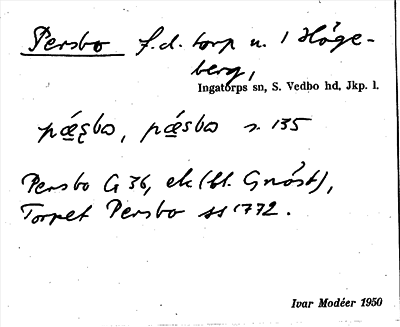 Persbo f.d. torp u. 1 Höge-
berg,
Ingatorps sn, S. Vedbo hd, Jkp. l.
pǽsbo, pǽsbo s. 135
Persbo G 36, ek (bl. Gnöst),
Torpet Persbo ss 1772.
Ivar Modéer 1950